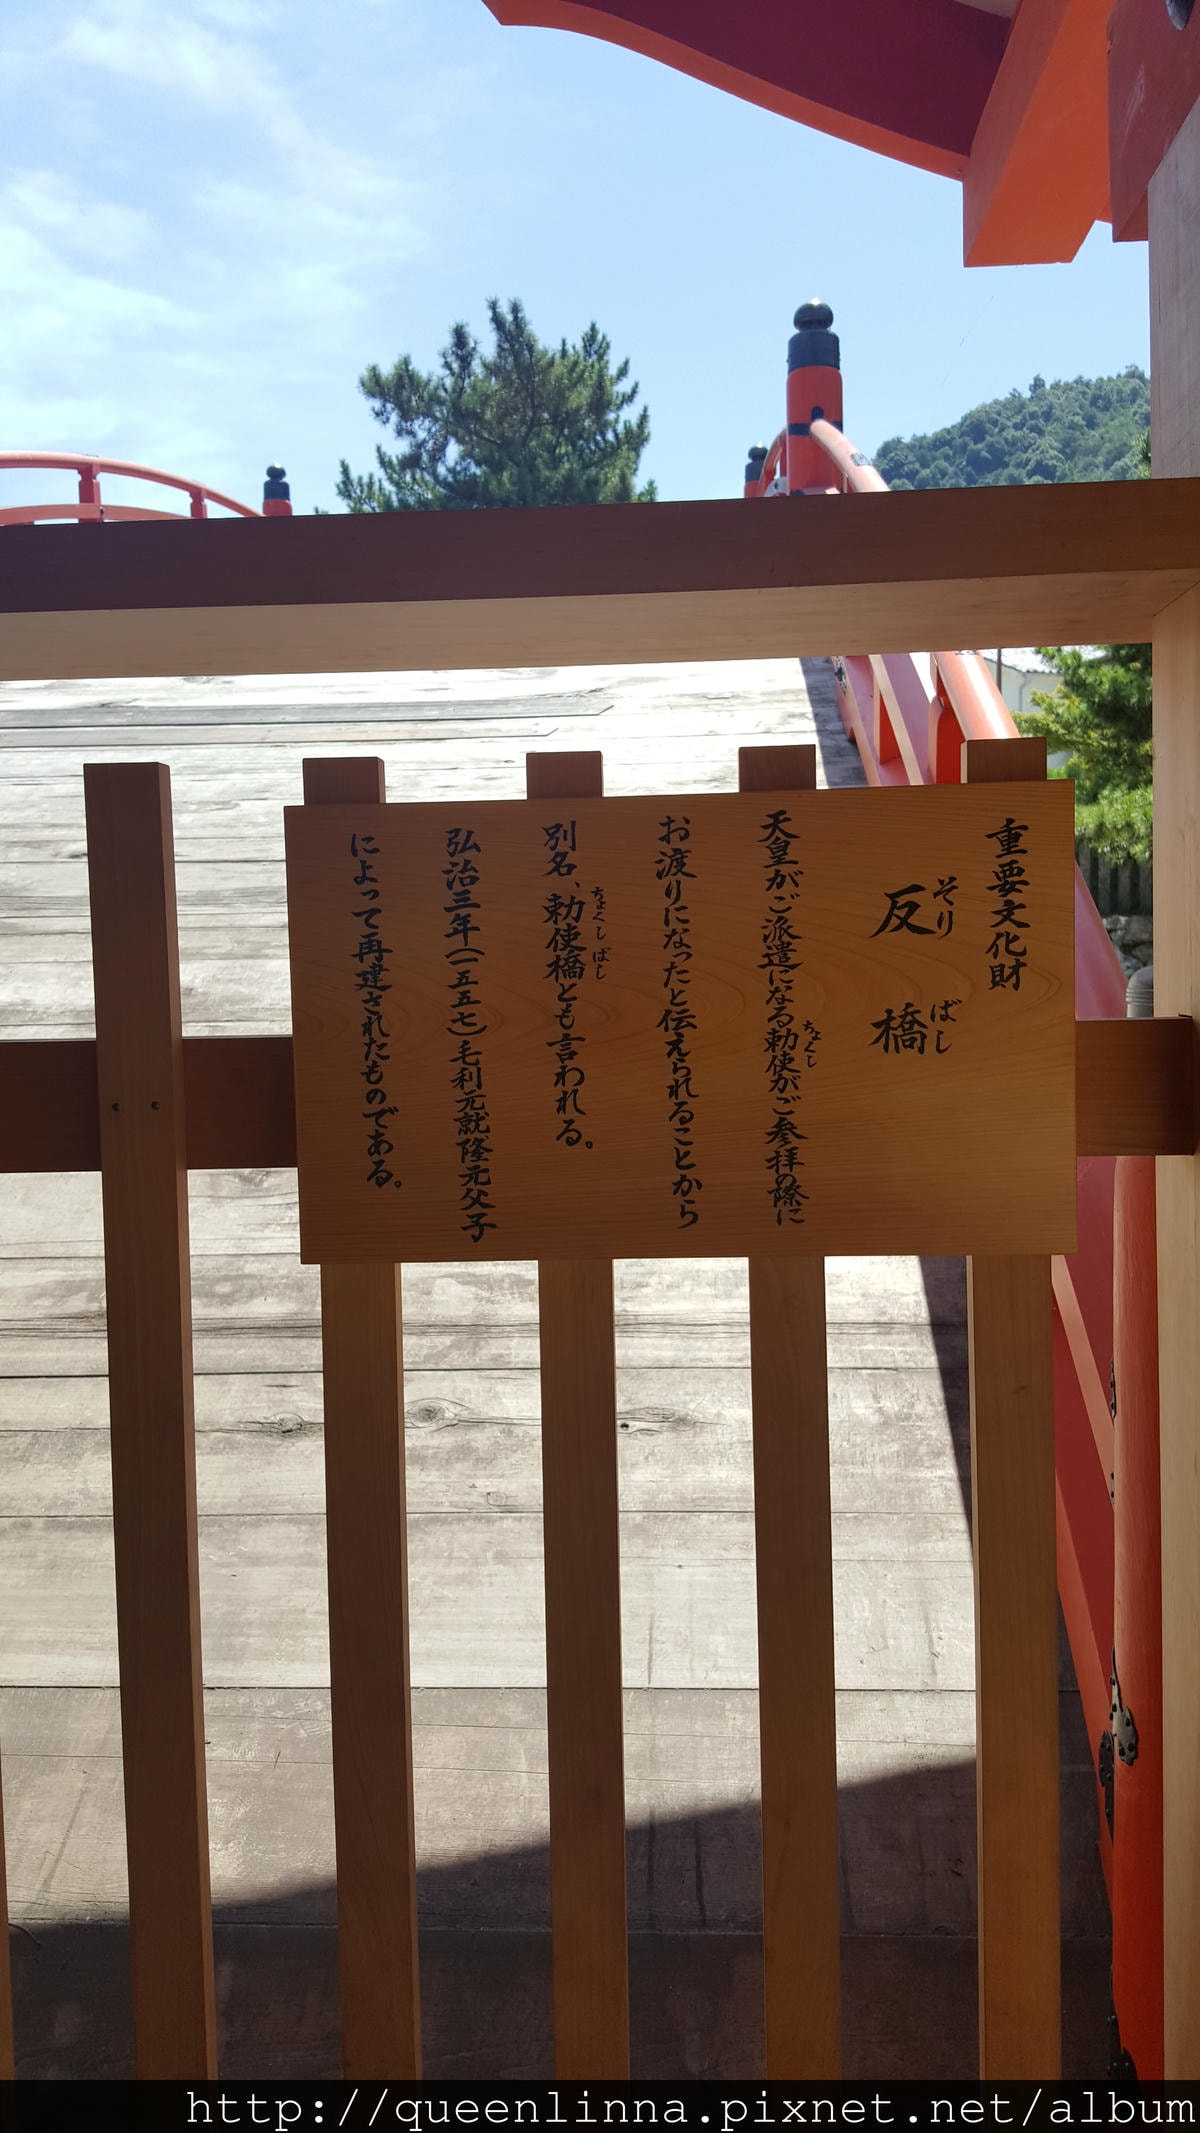 重要文化財
反橋
そりばし
天皇がご派遣になる勅使がご参拝の際に
ちょくし
お渡りになったと伝えられることから
別名、勅使橋とも言われる。
ちょくしばし
弘治三年(一五五七)毛利元就隆元父子
によって再建されたものである。
http://queenlinna.pixnet.net/album